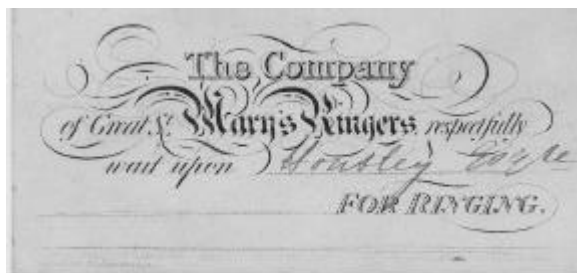 The Company
of Great St. Mary's Ringers, respectfully
wait upon Housley Esqre
FOR RINGING.